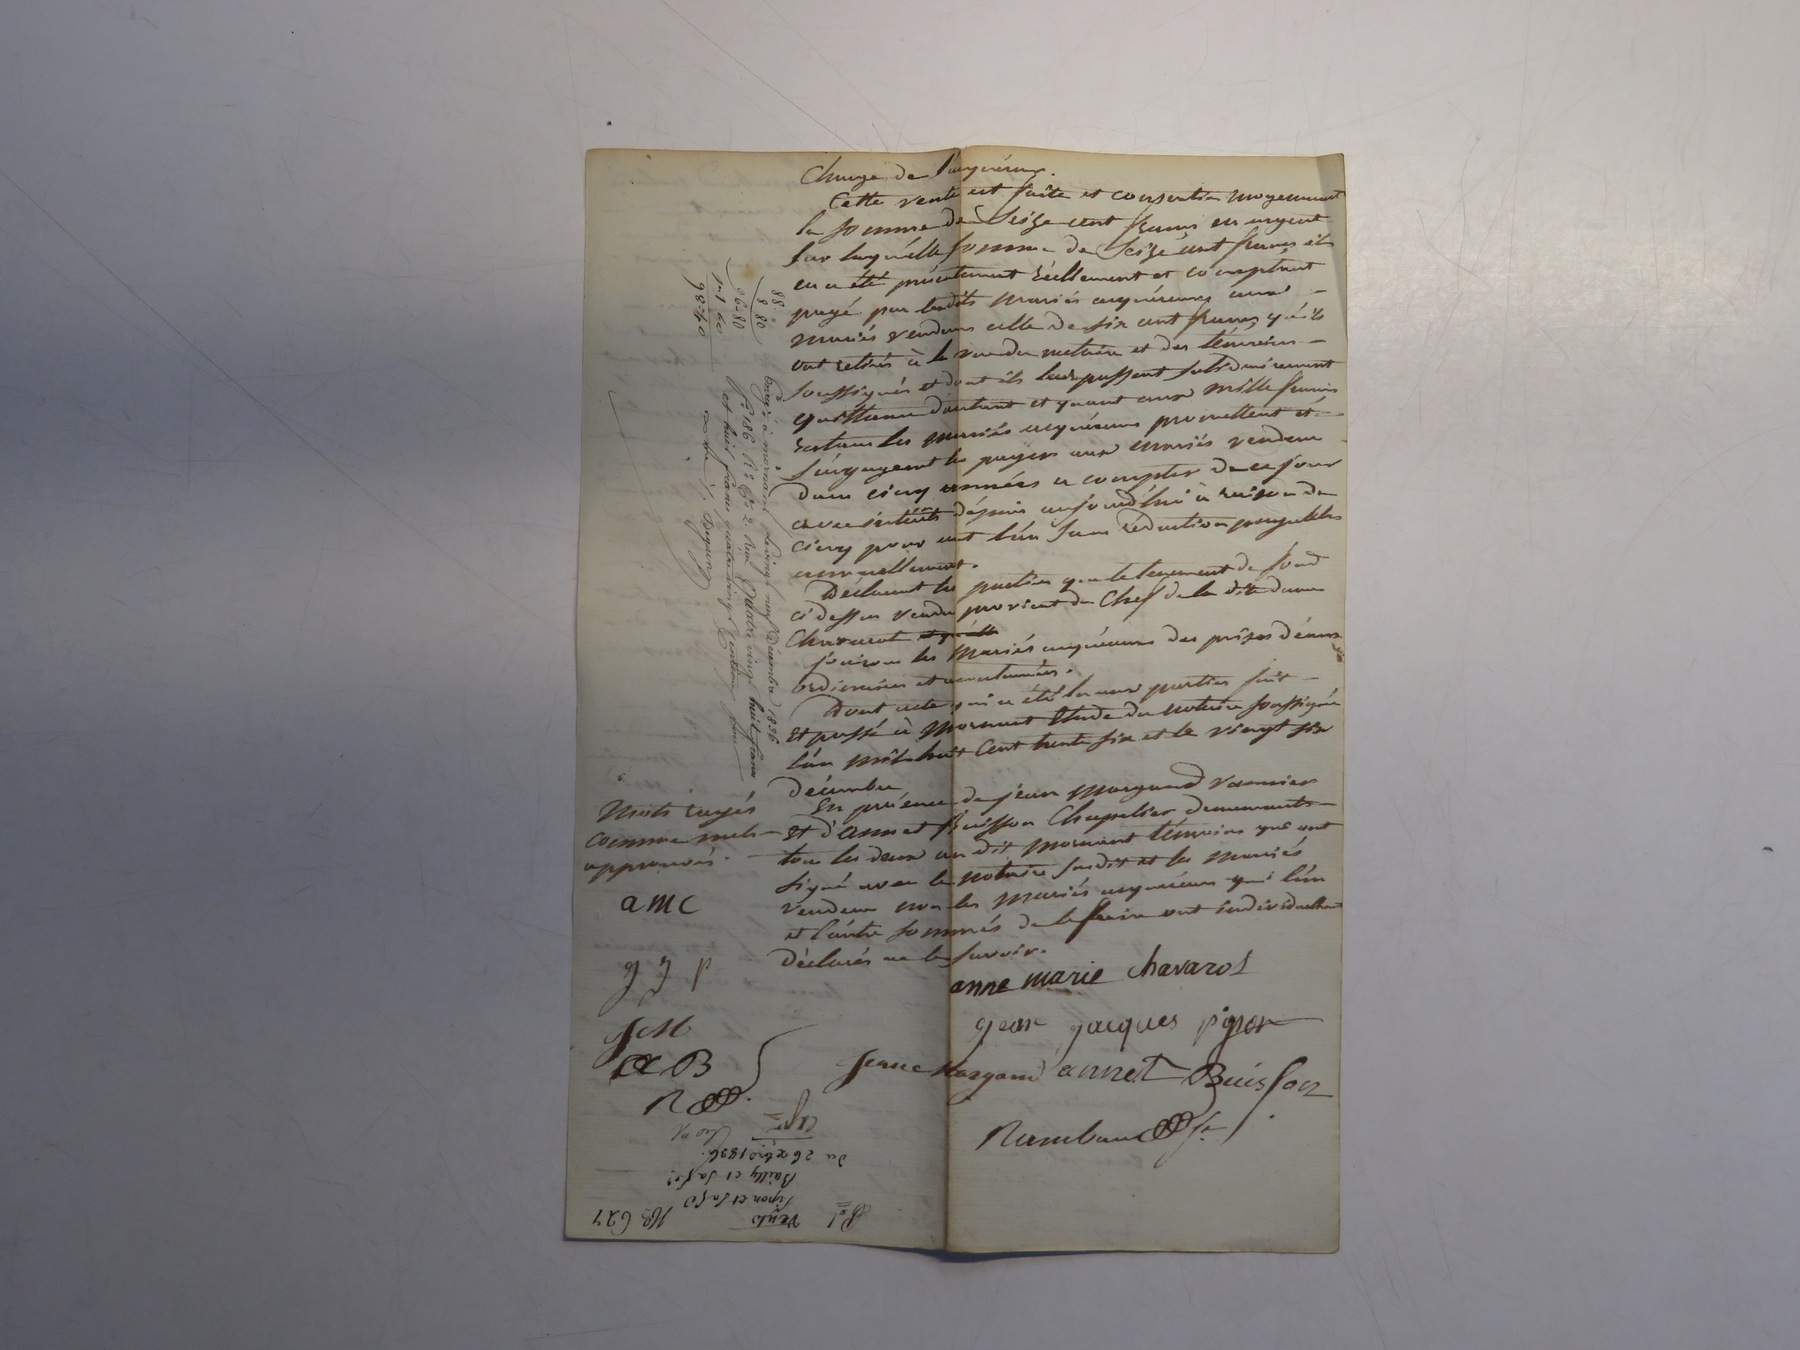 Charge de l'acquéreur.
Cette vente est faite et consentie moyennant
la somme de Seize cent francs en argent
sur laquelle somme de Seize cent francs il
en a été présentement réellement et comptant
payé par lesdits mariés acquéreurs aux
mariés vendeurs celle de six cent francs qu'ils
ont retirés à la vue du notaire et des témoins
soussignés et dont ils leur passent solidairement
quittance d'autant et quant aux mille francs
restans les mariés acquéreurs promettent et
s'engagent les payer aux mariés vendeurs
dans cinq années à compter de ce jour
avec intérêts depuis aujourd'hui à raison de
cinq pour cent l'an sans réduction payables
annuellement.
Déclarent les parties que le tenement de fond
ci dessus vendu provient du Chef de la dite dame
Chavarot et qu'elle
jouiront les Mariés acquéreurs des prises d'eaux
ordinaires et accoutumées.
Dont acte qui a été lu aux parties fait
Et passé à Mornant Etude du notaire soussigné
l'an mil huit Cent trente six et le vingt six
décembre
En présence de jean Margand vannier
et d'annet Buisson Chapelier demeurants
tous les deux au dit Mornant témoins qui ont
signé avec le notaire susdit et les mariés
vendeurs non les mariés acquéreurs qui l'un
et l'autre sommés de le faire ont individuellement
déclarés ne le savoir.
anne marie chavarot
jean jacques pipon
Jean Margand annet Buisson
Rambaud
Mots rayés
comme nuls
approuvés.
amc
g g p
JM
aB
R
88
8 80
96 80
1 60
98 40
Enreg. à mornant le vingt neuf Décembre 1836
f° 186 R° C° 2. Reçu quatre vingt huit francs
et huit francs quatre vingt centimes pour
No 627
Vente
pipon et sa fe
Bailly et sa fe
du 26 xbre 1836.